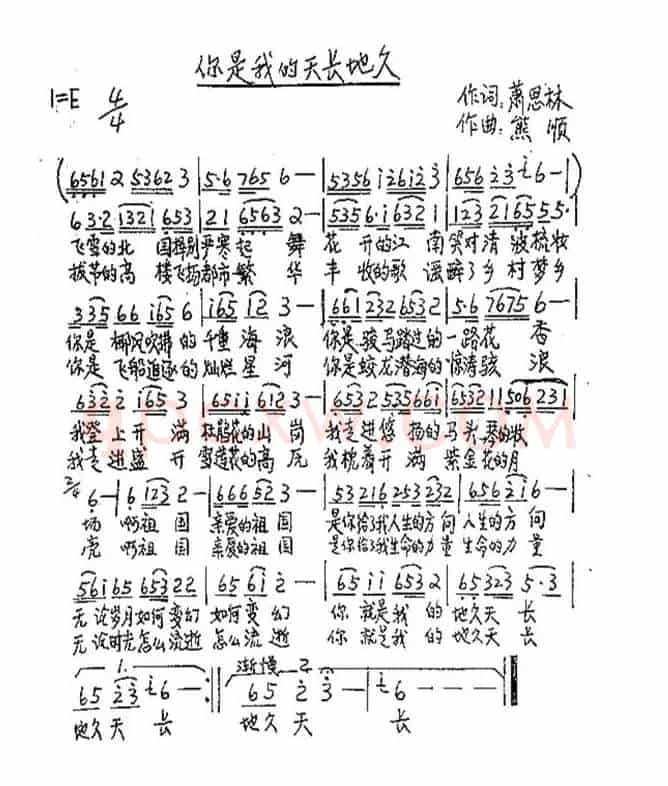 你是我的天长地久
1=E 4/4
作词:萧思林
作曲:熊顺
(65612 53623|5·6 765 6—|5356 i26i23|656 23 i6—|)
63·2 1321 653|21 6563 2—|535 6·i 6321|123 2165 55·|
飞雪的北 国挥别严寒起 舞 花 开的江 南笑对清 波梳妆
拔节的高 楼飞扬都市繁 华 丰 收的歌 谣醉了乡 村梦乡
335 66 i65 6|i65 12 3—|661 232 6532|5·6 7675 6—|
你是 椰风吹拂 的千重 海 浪 你是 骏马踏过的 一路花 香
你是 飞船追逐 的灿烂 星 河 你是 蛟龙潜海的 惊涛骇 浪
6322 2 i653|65ii 6i23—|6532 535661|6532 11506231|
我登 上开 满 杜鹃花的山 岗 我走进悠 扬的马头 琴的牧
我走 进盛 开 雪莲花的高 原 我枕着开 满 紫金花的月
2/4 6—|6 123 2—|666 52 3—|5321 6253 232|656 21 6—|
场 啊祖 国 亲爱的祖 国 是你给了我人生的方 向 人生的方 向
亮 啊祖 国 亲爱的祖 国 是你给了我生命的力 量 生命的力 量
56i65 65322|65 6i 2—|65 ii 6532|65323 5·3|
无 论岁月如何变幻 如何变 幻 你 就是我 的 地久天 长
无 论时光怎么流逝 怎么流 逝 你 就是我 的 地久天 长
1. 渐慢 2.
65 23 i6—:‖65 2 3—|i6———‖
地久天 长 地久 天 长